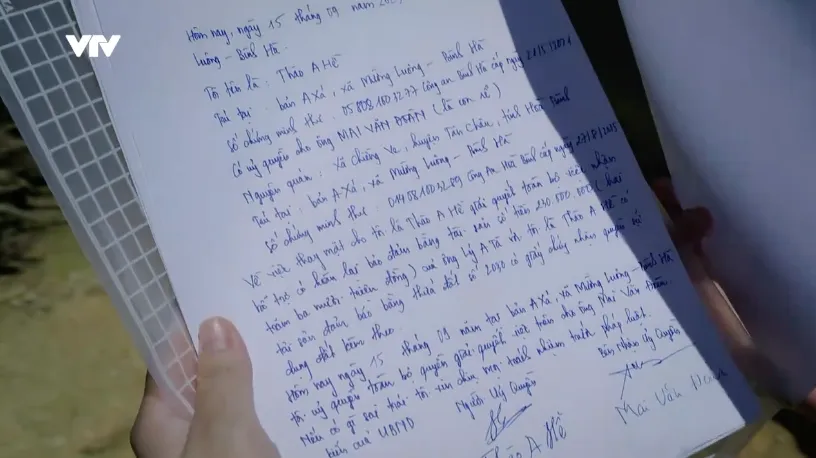 VTV
Hôm nay, ngày 15 tháng 09 năm
Luông - Bình Hà.
Tôi tên là : Thào A Hề
Trú tại : bản A Xá, xã Mường Luông - Bình Hà
Số chứng minh thư : Công an Bình Hà cấp ngày
Có uỷ quyền cho ông MAI VĂN ĐOÀN (là con rể)
Nguyên quán : xã Chiềng Ve, huyện Tân Châu, tỉnh
Trú tại : bản A Xá, xã Mường Luông - Bình Hà
Số chứng minh thư : Công An cấp ngày 27/8/2015
Về việc thay mặt cho tôi là Thào A Hề giải quyết toàn bộ việc nhận
bồi trợ có hoàn lại bảo đảm bằng tài sản số tiền 230.000.000 (hai
trăm ba mươi triệu đồng) của ông Lý A Tà và tôi là Thào A Hề có
tài sản đảm bảo bằng thửa đất số 2030 có giấy chứng nhận quyền sử
dụng đất kèm theo.
Hôm nay ngày 15 tháng 09 năm tại bản A Xá, xã Mường Luông - Bình Hà
tôi uỷ quyền toàn bộ quyền giải quyết việc trên cho ông Mai Văn Đoàn.
Nếu có gì sai trái tôi xin chịu mọi trách nhiệm trước pháp luật.
kiến của UBND Người Uỷ Quyền Bên Nhận Uỷ Quyền
Thào A Hề Mai Văn Đoàn